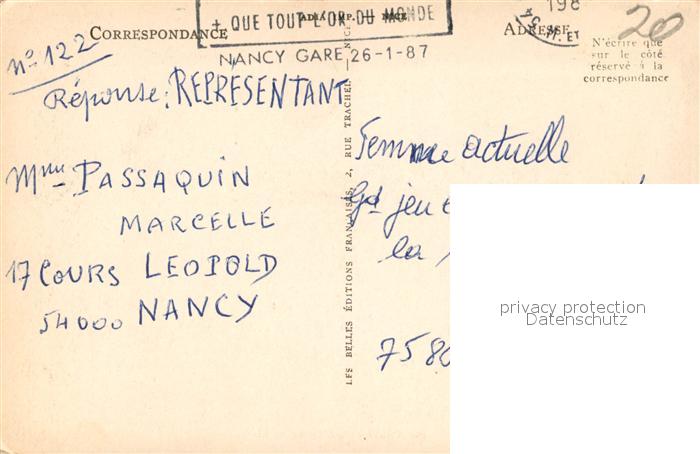 + QUE TOUT L'OR DU MONDE
198
20
CORRESPONDANCE
ADRESSE
NANCY GARE 26-1-87
N'écrire que
sur le côté
réservé à la
correspondance
n° 122
Réponse: REPRESENTANT
Mme PASSAQUIN
MARCELLE
17 COURS LEOPOLD
54000 NANCY
LES BELLES ÉDITIONS FRANÇAISES, 2, RUE TRACHEL
Femme actuelle
Gd jeu
la
7580
privacy protection
Datenschutz